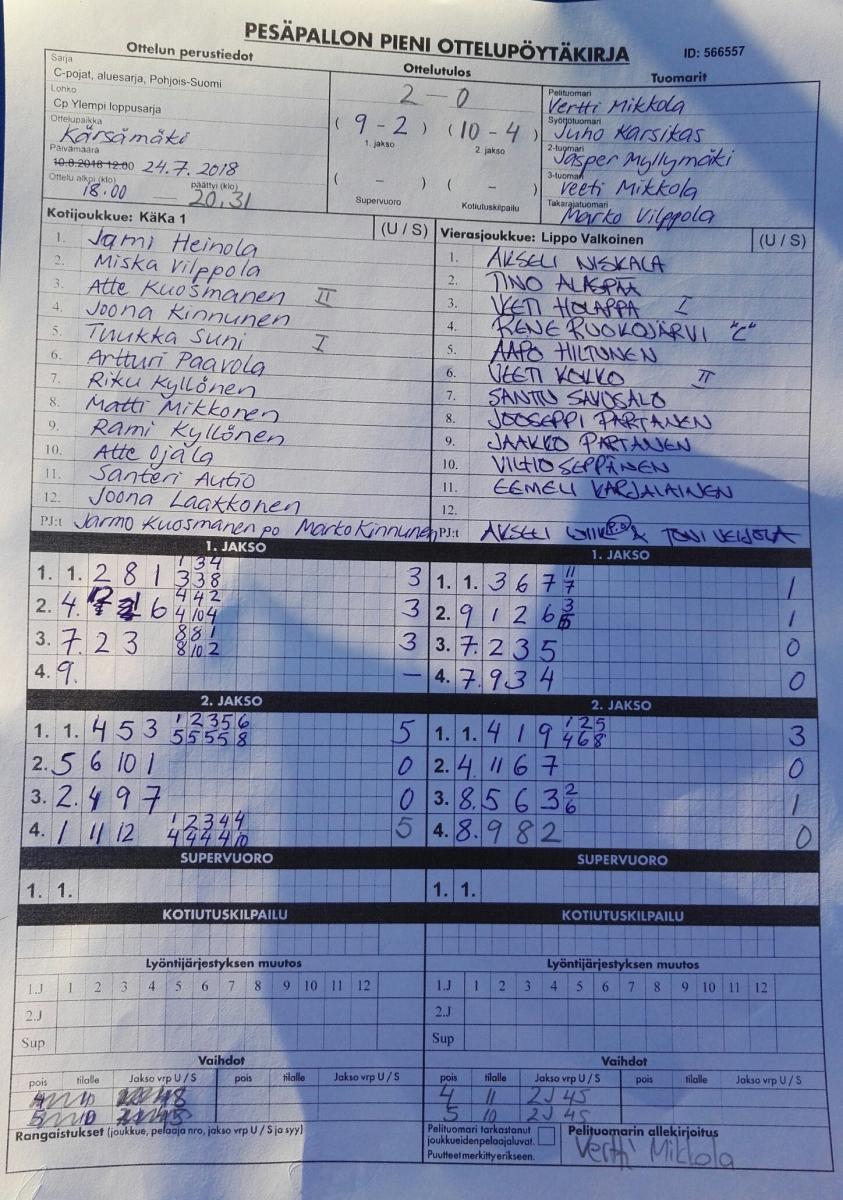 PESÄPALLON PIENI OTTELUPÖYTÄKIRJA
ID: 566557
Ottelun perustiedot
Ottelutulos
Tuomarit
Sarja
C-pojat, aluesarja, Pohjois-Suomi
Lohko
Cp Ylempi loppusarja
Ottelupaikka
Kärsämäki
Päivämäärä
10.8.2018 12.00 24.7.2018
Ottelu alkoi (klo) päättyi (klo)
18.00 — 20.31
2 - 0
( 9 - 2 ) ( 10 - 4 )
1. jakso 2. jakso
( - ) ( - )
Supervuoro Kotiutuskilpailu
Pelituomari
Vertti Mikkola
Syöttötuomari
Juho Karsikas
2-tuomari
Jasper Myllymäki
3-tuomari
Veeti Mikkola
Takarajatuomari
Marko Vilppola
Kotijoukkue: KäKa 1 (U / S)
1. Jami Heinola
2. Miska Vilppola
3. Atte Kuosmanen II
4. Joona Kinnunen
5. Tuukka Suni I
6. Artturi Paavola
7. Riku Kyllönen
8. Matti Mikkonen
9. Rami Kyllönen
10. Atte Ojala
11. Santeri Autio
12. Joona Laakkonen
PJ:t Jarmo Kuosmanen po Marko Kinnunen
Vierasjoukkue: Lippo Valkoinen (U / S)
1. AKSELI NISKALA
2. TINO ALASPÄÄ
3. VEETI HOLAPPA I
4. RENE RUOKOJÄRVI "C"
5. AAPO HILTUNEN
6. VEETI KOKKO II
7. SANTU SAVUSALO
8. JOOSEPPI PARTANEN
9. JAAKKO PARTANEN
10. VILTIO SEPPÄNEN
11. EEMELI KARJALAINEN
12.
PJ:t AKSELI P.O TONI VEIJOLA
1. JAKSO
1. 1. 2 8 1 1 3 4 3
3 3 8
2. 4. 6 4 4 2 3
4 10 4
3. 7. 2 3 8 8 1 3
8 10 2
4. 9. —
1. JAKSO
1. 1. 3 6 7 11 1
7
2. 9 1 2 6 3 1
3. 7. 2 3 5 0
4. 7. 9 3 4 0
2. JAKSO
1. 1. 4 5 3 1 2 3 5 6 5
5 5 5 5 8
2. 5 6 10 1 0
3. 2. 4 9 7 0
4. 1 11 12 1 2 3 4 4 5
4 4 4 4 10
2. JAKSO
1. 1. 4 1 9 1 2 5 3
4 6 8
2. 4 11 6 7 0
3. 8. 5 6 3 2 1
6
4. 8. 9 8 2 0
SUPERVUORO
1. 1.
SUPERVUORO
1. 1.
KOTIUTUSKILPAILU
KOTIUTUSKILPAILU
Lyöntijärjestyksen muutos
1.J 1 2 3 4 5 6 7 8 9 10 11 12
2.J
Sup
Lyöntijärjestyksen muutos
1.J 1 2 3 4 5 6 7 8 9 10 11 12
2.J
Sup
Vaihdot
pois tilalle Jakso vrp U / S pois tilalle Jakso vrp U / S
Vaihdot
pois tilalle Jakso vrp U / S pois tilalle Jakso vrp U / S
4 11 2J 4S
5 10 2J 4S
Rangaistukset (joukkue, pelaaja nro, jakso vrp U / S ja syy)
Pelituomari tarkastanut
joukkueiden pelaajaluvat.
Puutteet merkitty erikseen.
Pelituomarin allekirjoitus
Vertti Mikkola